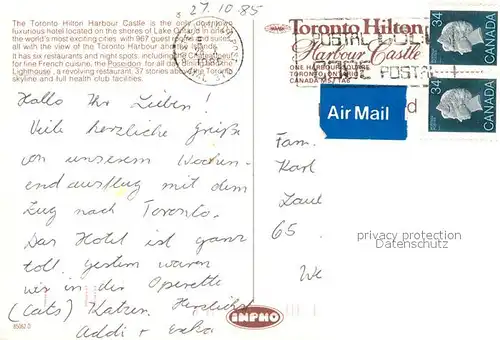 27.10.85
The Toronto Hilton Harbour Castle is the only downtown
luxurious hotel located on the shores of Lake Ontario in one of
the world's most exciting cities with 967 guest rooms and suites,
all with the view of the Toronto Harbour and the
It has six restaurants and night spots, including the Chateauneuf
for fine French cuisine, the Poseidon for all fish and the
Lighthouse, a revolving restaurant, 37 stories above the Toronto
skyline and full health club facilities.
Hallo Ihr Lieben!
Viele herzliche Grüße
von unserem Wochen-
endausflug mit dem
Zug nach Toronto.
Das Hotel ist ganz
toll, gestern waren
wir in der Operette
(Cats) Katzen. Herzlichst
Addi +
85062-D
INPRO
Toronto Hilton
Harbour Castle
ONE HARBOUR SQUARE
TORONTO, ONTARIO
CANADA M5J 1A6
POSTAL CODE
POSTAL
34
CANADA
34
CANADA
Air Mail
Fam.
Karl
65
We
privacy protection
Datenschutz